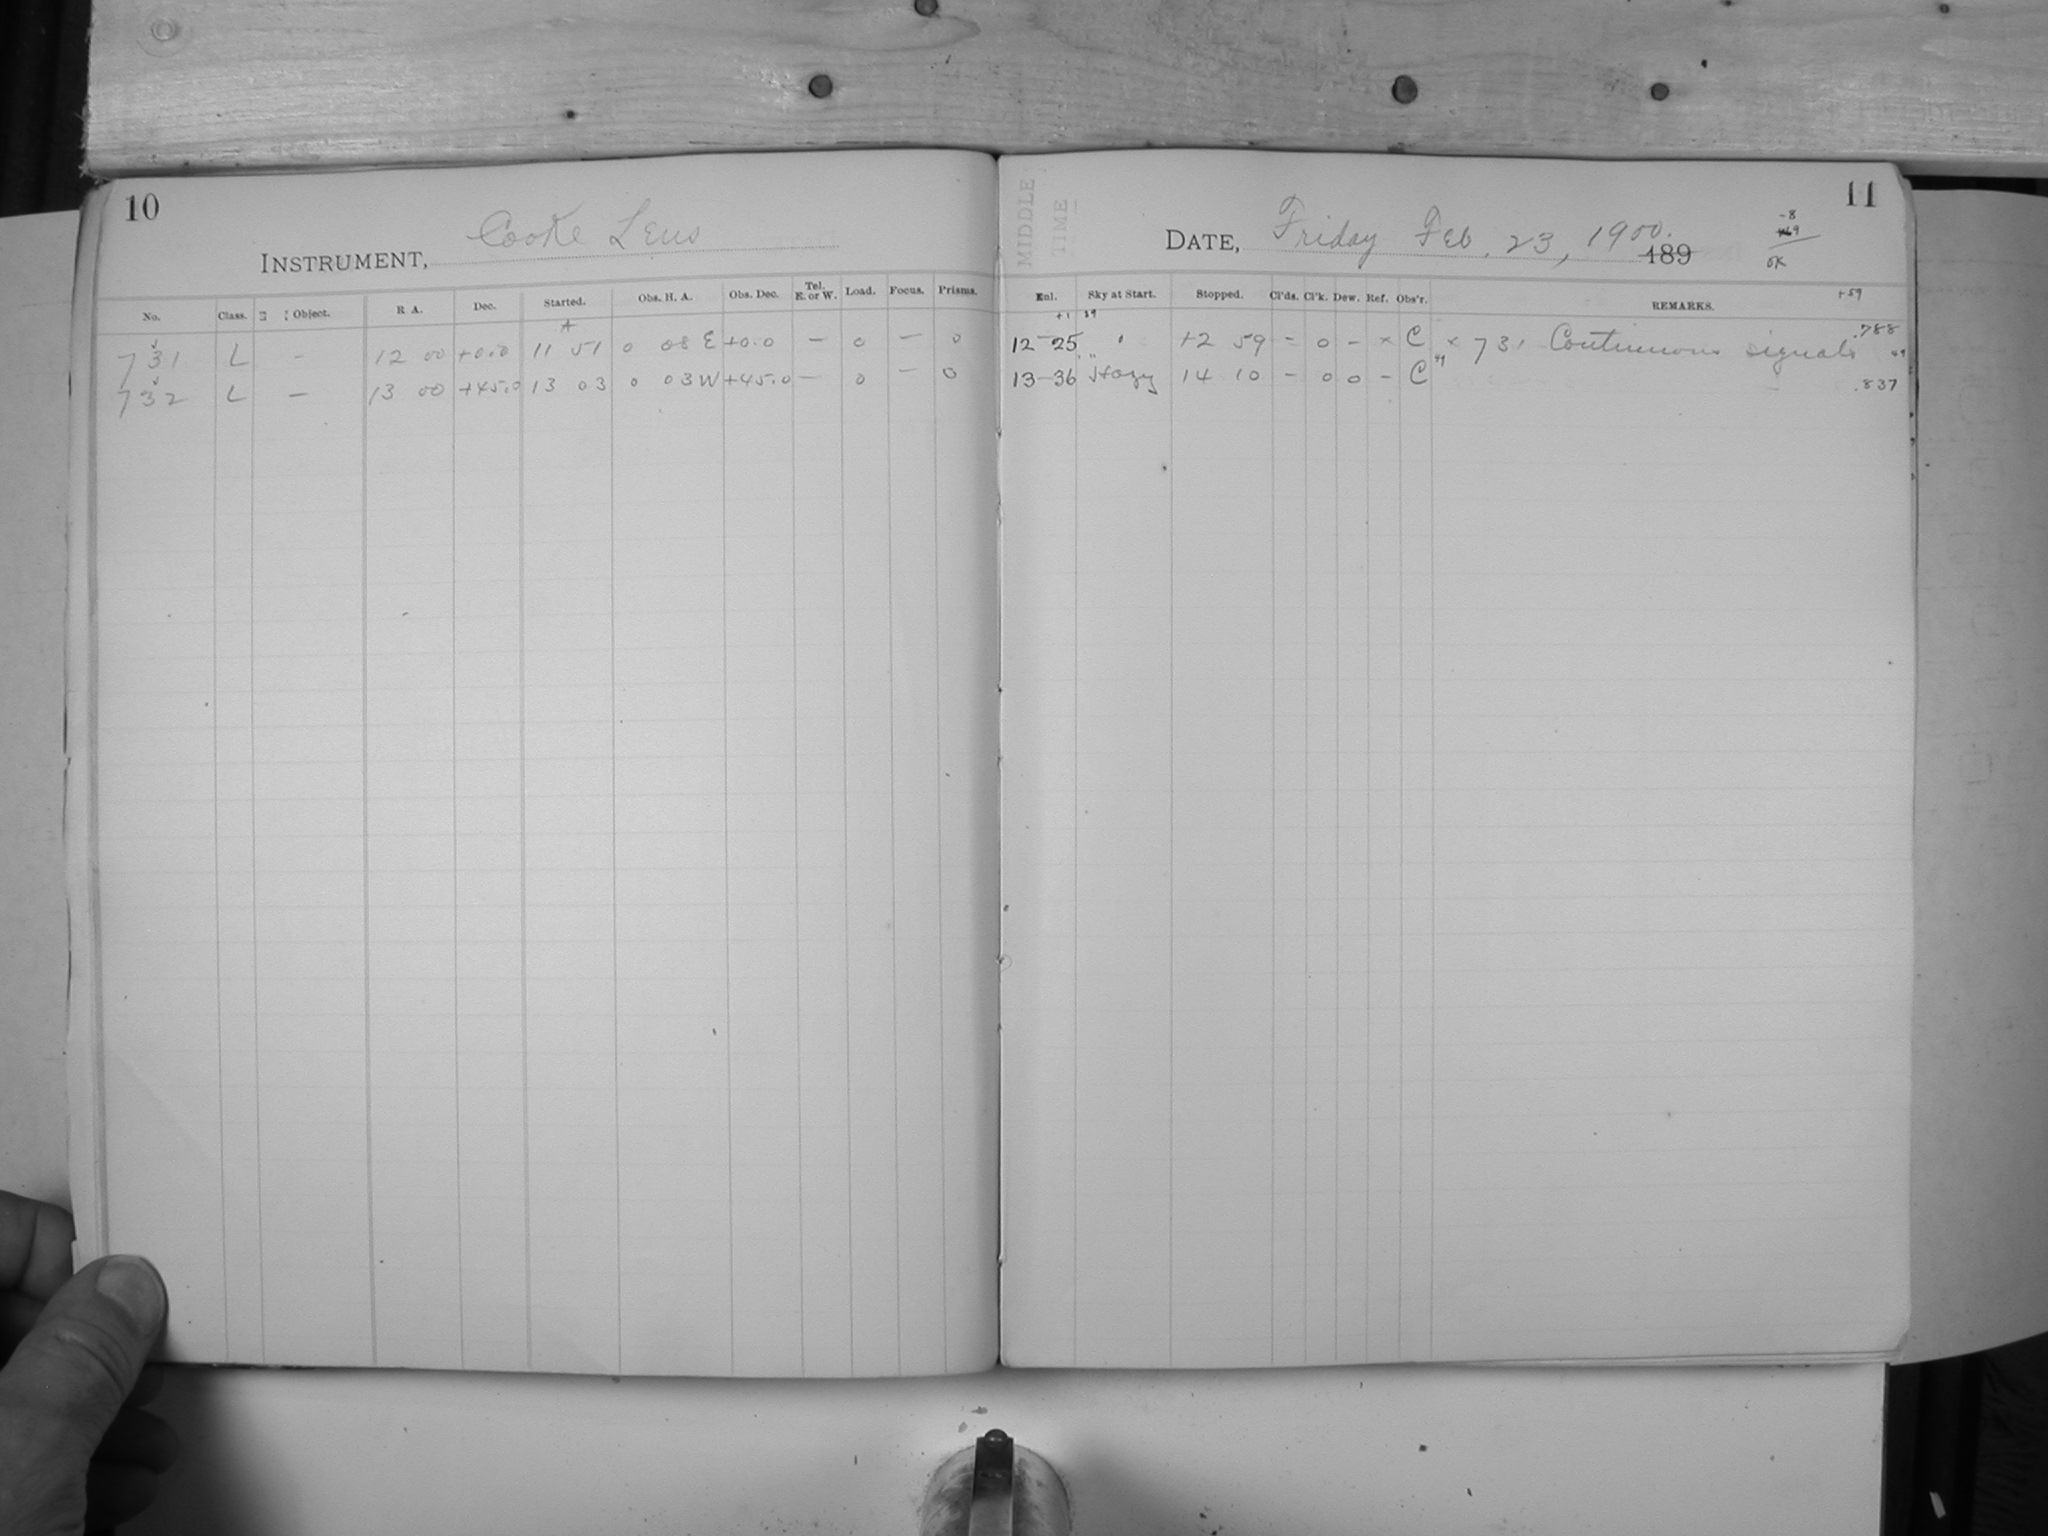 10
INSTRUMENT, Cooke Lens
No. Class. Object. R A. Dec. Started. Obs. H. A. Obs. Dec. Tel. E. or W. Load. Focus. Prisms.
731 L - 12 00 +0.0 11 51 0 08 E +0.0 - 0 - 0
732 L - 13 00 +45.0 13 03 0 03 W +45.0 - 0 - 0
MIDDLE TIME
11
DATE, Friday Feb. 23, 1900. 189
-8
OK
Enl. Sky at Start. Stopped. Cl'ds. Cl'k. Dew. Ref. Obs'r. REMARKS. +59
+1 59
12-25 12 59 - 0 - × C × 731 Continuous signals .788
49
13-36 Hazy 14 10 - 0 0 - C .837